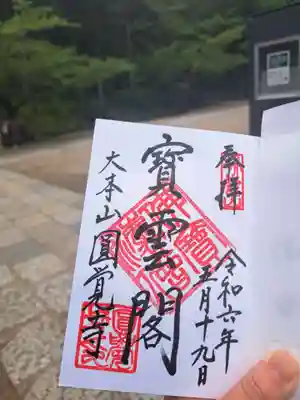 奉拝
令和六年
五月十九日
寳雲閣
大本山圓覚寺